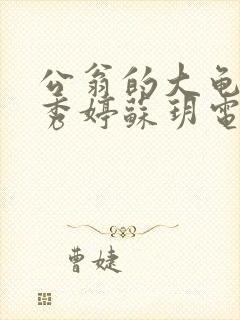 公翁的大龟
秀婷蘇玥電
曹婕